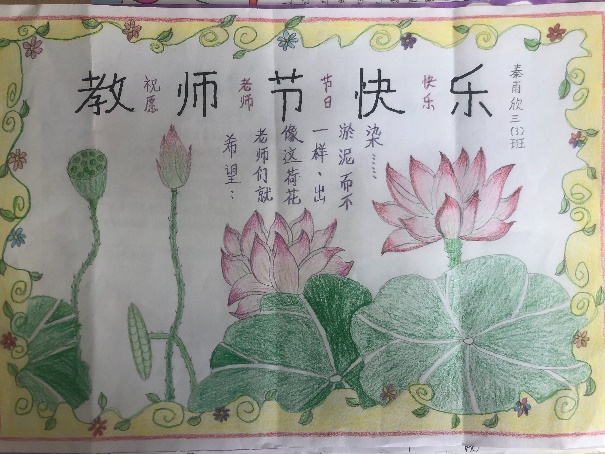 教师节快乐
祝愿
老师
节日
快乐
三(3)班
希望：
老师们就
像这荷花
一样、出
淤泥而不
染……